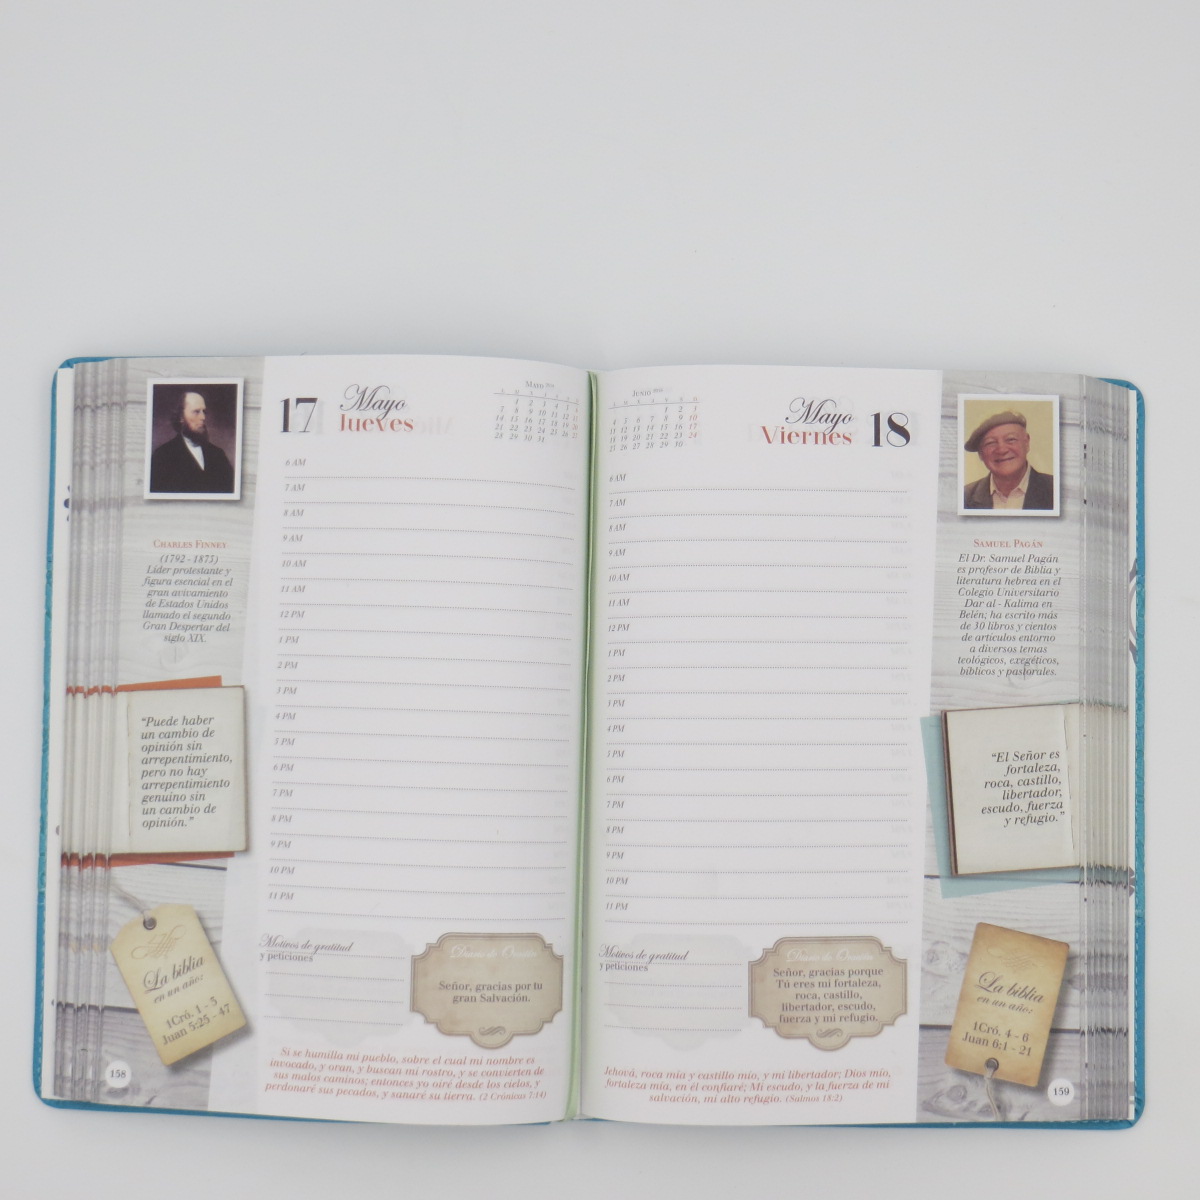 17
Mayo
Jueves
Mayo
CHARLES FINNEY
(1792 - 1875)
Líder protestante y
figura esencial en el
gran avivamiento
de Estados Unidos
llamado el segundo
Gran Despertar del
siglo XIX.
“Puede haber
un cambio de
opinión sin
arrepentimiento,
pero no hay
arrepentimiento
genuino sin
un cambio de
opinión.”
La biblia
en un año:
1Cró. 1 - 3
Juan 5:25 - 47
158
6 AM
7 AM
8 AM
9 AM
10 AM
11 AM
12 PM
1 PM
2 PM
3 PM
4 PM
5 PM
6 PM
7 PM
8 PM
9 PM
10 PM
11 PM
Motivos de gratitud
y peticiones
Diario de Oración
Señor, gracias por tu
gran Salvación.
Si se humilla mi pueblo, sobre el cual mi nombre es
invocado, y oran, y buscan mi rostro, y se convierten de
sus malos caminos; entonces yo oiré desde los cielos, y
perdonaré sus pecados, y sanaré su tierra. (2 Crónicas 7:14)
JUNIO
Mayo
Viernes
18
6 AM
7 AM
8 AM
9 AM
10 AM
11 AM
12 PM
1 PM
2 PM
3 PM
4 PM
5 PM
6 PM
7 PM
8 PM
9 PM
10 PM
11 PM
Motivos de gratitud
y peticiones
Diario de Oración
Señor, gracias porque
Tú eres mi fortaleza,
roca, castillo,
libertador, escudo,
fuerza y mi refugio.
Jehová, roca mía y castillo mío, y mi libertador; Dios mío,
fortaleza mía, en él confiaré; Mi escudo, y la fuerza de mi
salvación, mi alto refugio. (Salmos 18:2)
SAMUEL PAGÁN
El Dr. Samuel Pagán
es profesor de Biblia y
literatura hebrea en el
Colegio Universitario
Dar al - Kalima en
Belén; ha escrito más
de 30 libros y cientos
de artículos entorno
a diversos temas
teológicos, exegéticos,
bíblicos y pastorales.
“El Señor es
fortaleza,
roca, castillo,
libertador,
escudo, fuerza
y refugio.”
La biblia
en un año:
1Cró. 4 - 6
Juan 6:1 - 21
159